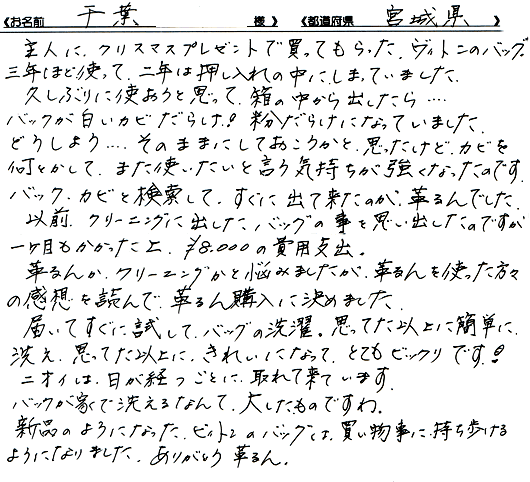 《お名前 千葉 様》《都道府県 宮城県》
主人に、クリスマスプレゼントで買ってもらった、ヴィトンのバッグ。
三年ほど使って、二年は押し入れの中にしまっていました。
久しぶりに使おうと思って、箱の中から出したら‥‥
バックが白いカビだらけ!粉だらけになっていました。
どうしよう‥‥そのままにしておこうかと、思ったけど、カビを
何とかして、また使いたいと言う気持ちが強くなったのです。
バック、カビと検索して、すぐに出て来たのが、革るんでした。
以前、クリーニングに出した、バッグの事を思い出したのですが
一ヶ月もかかった上、¥8.000の費用支出。
革るんか、クリーニングかと悩みましたが、革るんを使った方々
の感想を読んで、革るん購入に決めました。
届いてすぐに試して、バッグの洗濯。思ってた以上に簡単に、
洗え、思ってた以上に、きれいになって、とてもビックリです!
ニオイは、日が経つごとに、取れて来ています。
バックが家で洗えるなんて、大したものですわ。
新品のようになった、ビィトンのバッグは、買い物事に、持ち歩ける
ようになりました、ありがとう革るん。